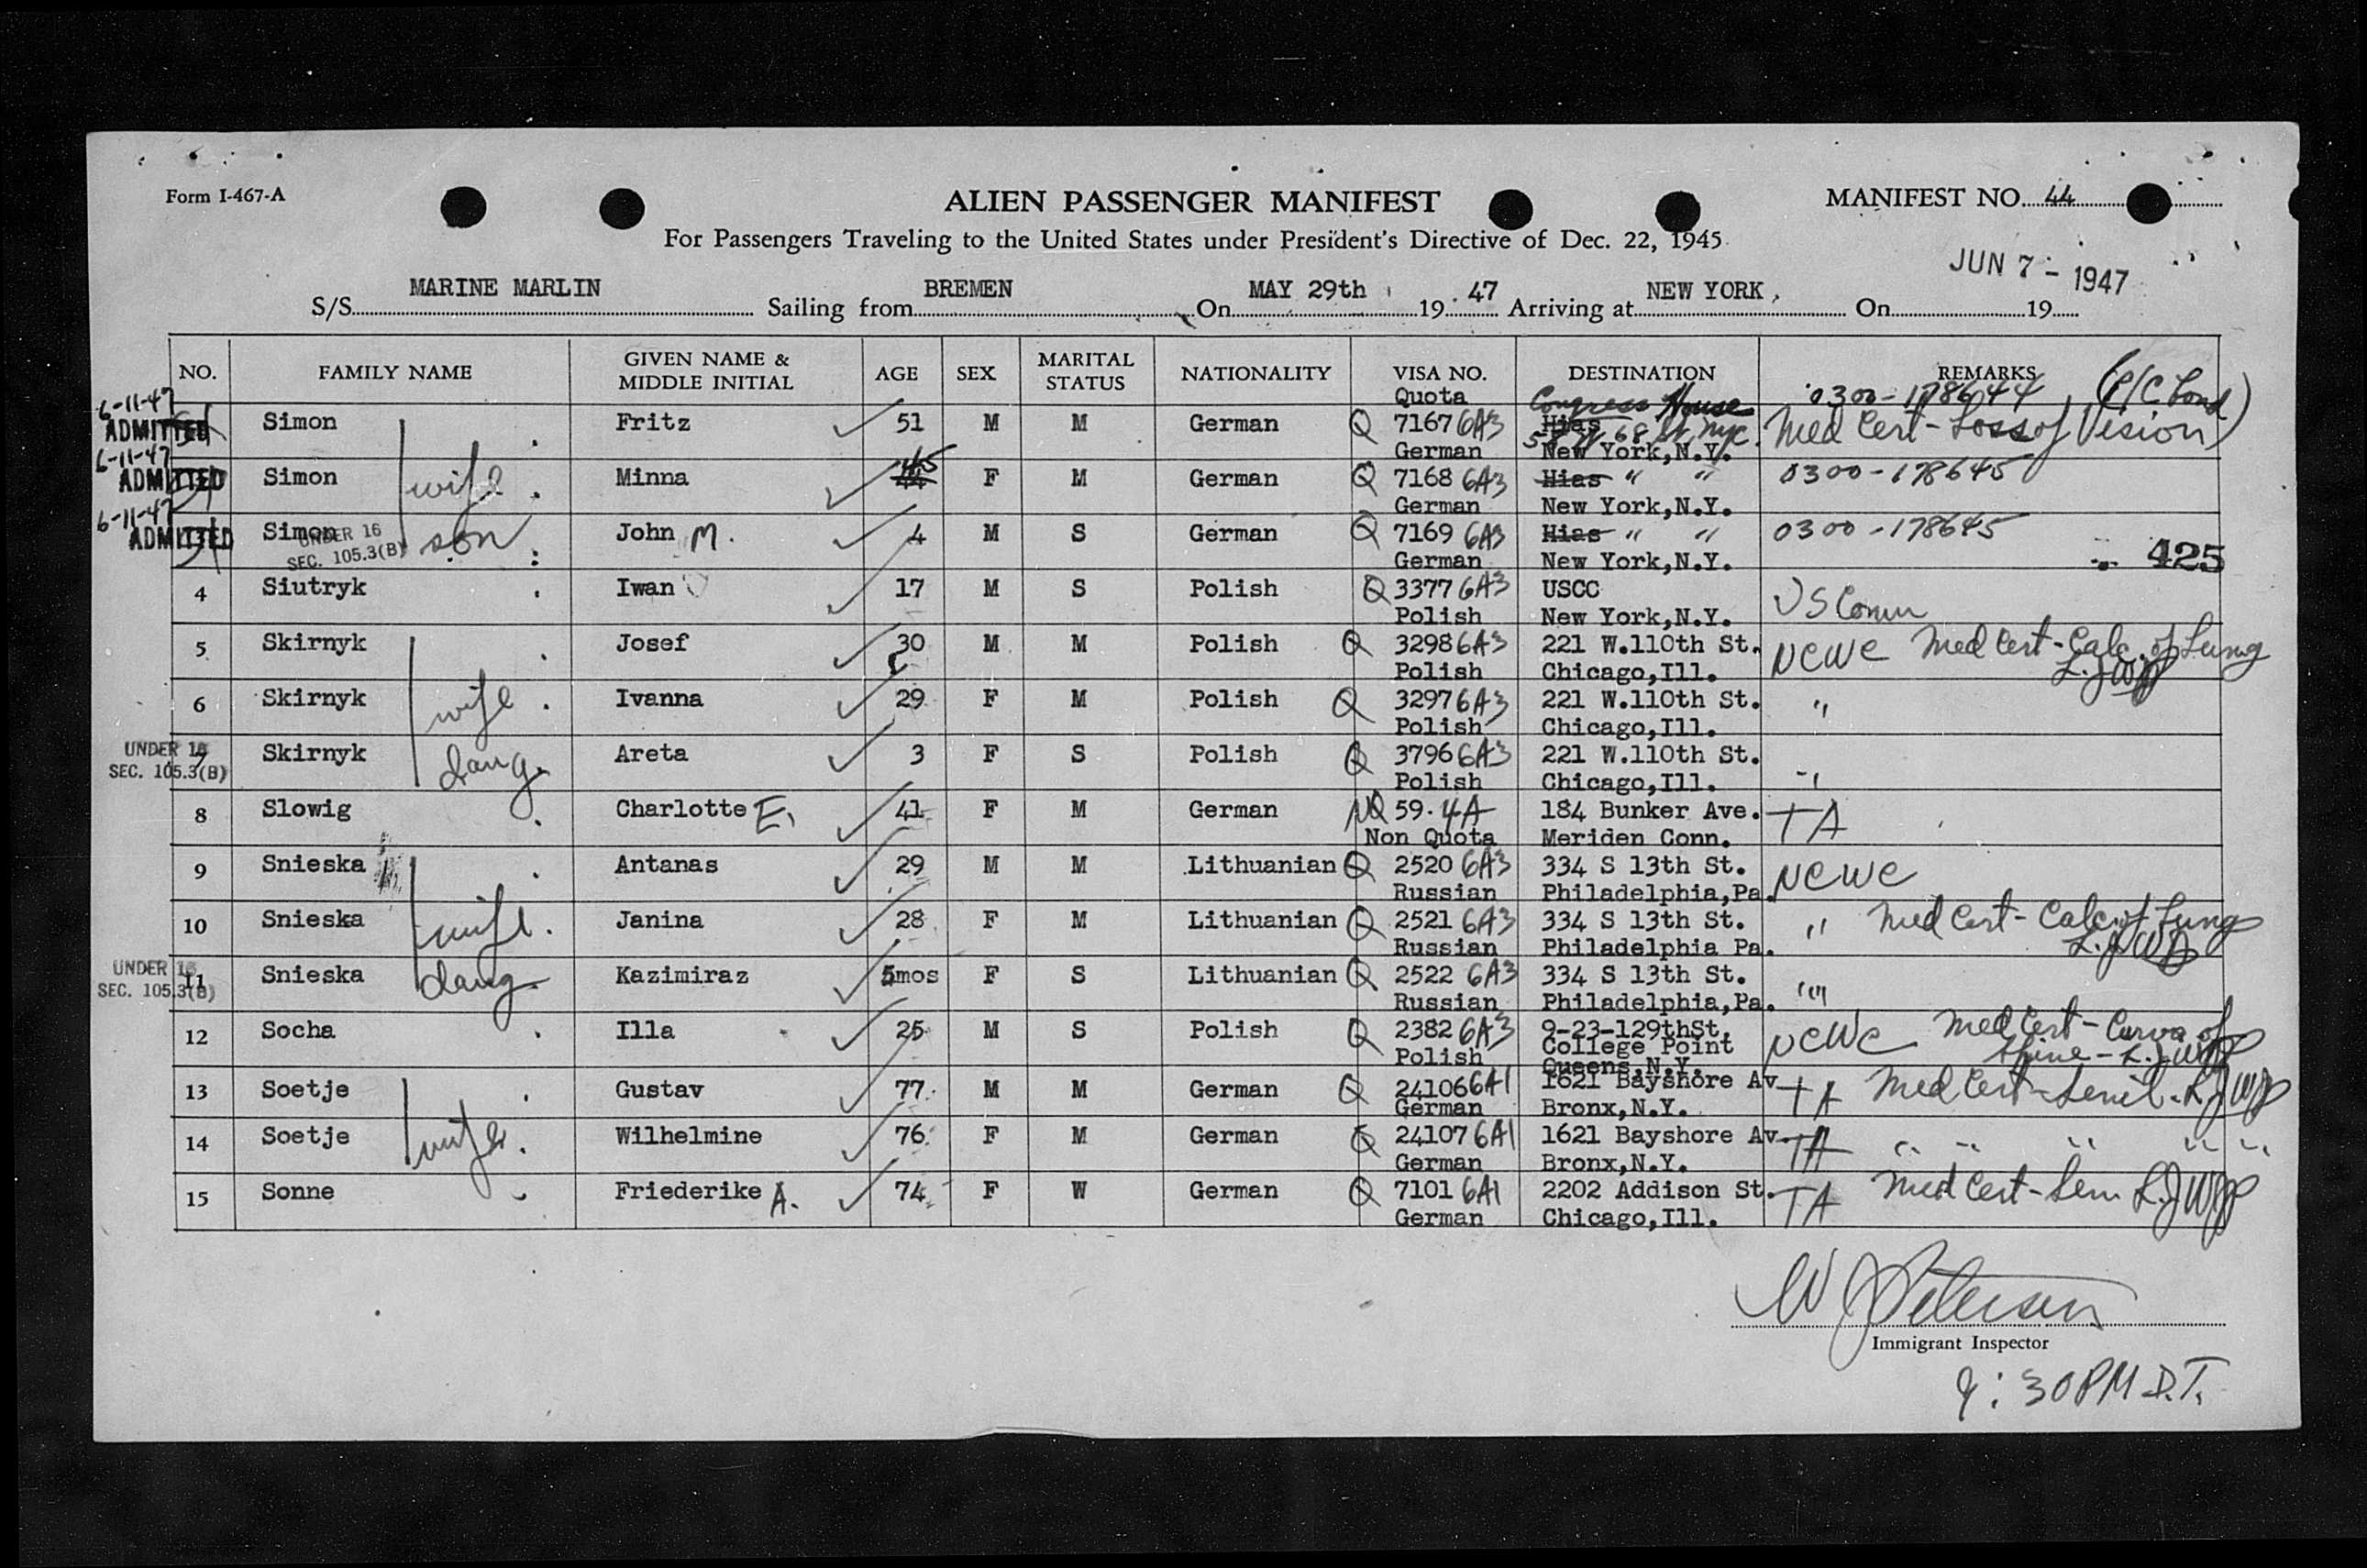 Form I-467-A
ALIEN PASSENGER MANIFEST
MANIFEST NO. 44
For Passengers Traveling to the United States under President's Directive of Dec. 22, 1945
JUN 7 - 1947
S/S MARINE MARLIN Sailing from BREMEN On MAY 29th 19 47 Arriving at NEW YORK, On 19
NO. FAMILY NAME GIVEN NAME & MIDDLE INITIAL AGE SEX MARITAL STATUS NATIONALITY VISA NO. DESTINATION REMARKS
Quota Congress House 0300-178644 (P/C Bond)
6-11-47 ADMITTED Simon Fritz 51 M M German Q 7167 6A3 Hias 68 St. NYC. Med Cert - Loss of Vision
German New York,N.Y.
6-11-47 ADMITTED Simon wife Minna 45 F M German Q 7168 6A3 Hias " " 0300-178645
German New York,N.Y.
6-11-47 ADMITTED Simon son John M. 4 M S German Q 7169 6A3 Hias " " 0300-178645
UNDER 16 SEC. 105.3(B) German New York,N.Y. 425
4 Siutryk Iwan 17 M S Polish Q 3377 6A3 USCC US Comm
Polish New York,N.Y.
5 Skirnyk Josef 30 M M Polish Q 3298 6A3 221 W.110th St. NCWC Med Cert - Calc. of Lung
Polish Chicago,Ill.
6 Skirnyk wife Ivanna 29 F M Polish Q 3297 6A3 221 W.110th St. "
Polish Chicago,Ill.
UNDER 16 SEC. 105.3(B) 7 Skirnyk daug. Areta 3 F S Polish Q 3796 6A3 221 W.110th St. "
Polish Chicago,Ill.
8 Slowig Charlotte E. 41 F M German NQ 59. 4A 184 Bunker Ave. TA
Non Quota Meriden Conn.
9 Snieska Antanas 29 M M Lithuanian Q 2520 6A3 334 S 13th St. NCWC
Russian Philadelphia,Pa.
10 Snieska wife. Janina 28 F M Lithuanian Q 2521 6A3 334 S 13th St. " Med Cert - Calc. of Lung
Russian Philadelphia Pa.
UNDER 16 SEC. 105.3(B) 11 Snieska daug. Kazimiraz 5mos F S Lithuanian Q 2522 6A3 334 S 13th St. "
Russian Philadelphia,Pa.
12 Socha Illa 25 M S Polish Q 2382 6A3 9-23-129thSt. NCWC Med Cert - Curva of
Polish College Point Spine -
Queens,N.Y.
13 Soetje Gustav 77 M M German Q 24106 6A1 1621 Bayshore Av TA Med Cert - Senil.
German Bronx,N.Y.
14 Soetje wife. Wilhelmine 76 F M German Q 24107 6A1 1621 Bayshore Av TA " " " " "
German Bronx,N.Y.
15 Sonne Friederike A. 74 F W German Q 7101 6A1 2202 Addison St. TA Med Cert - Sen.
German Chicago,Ill.
W J Peterson
Immigrant Inspector
9:30PM D.T.